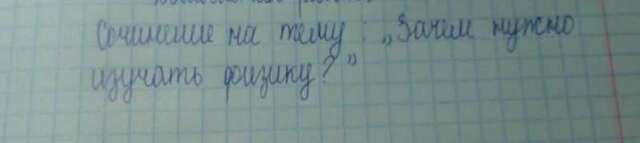 Сочинение на тему: „Зачем нужно
изучать физику?"